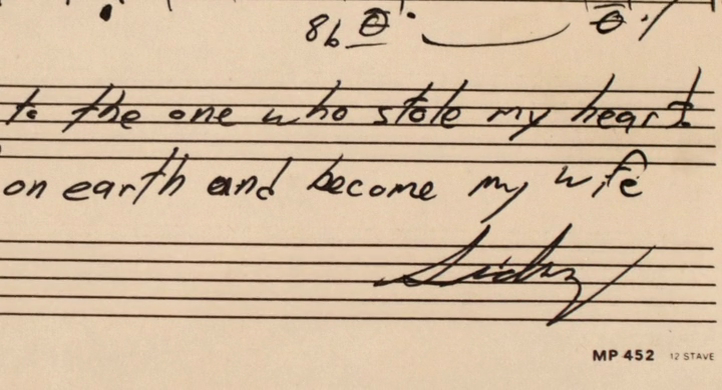 8b
to the one who stole my heart
on earth and become my wife
Sidney
MP 452 12 STAVE